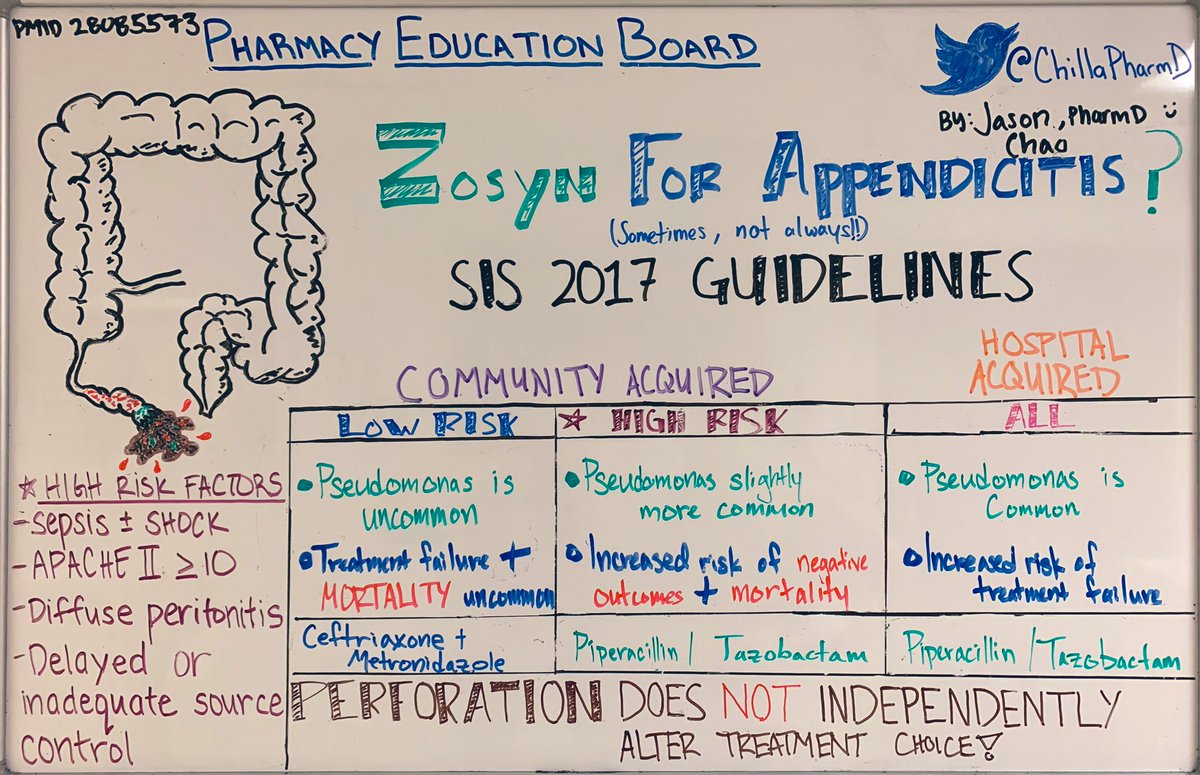 PMID 28085573
PHARMACY EDUCATION BOARD
@ChillaPharmD
BY: Jason, PharmD
Chao
ZOSYN FOR APPENDICITIS?
(Sometimes, not always!!)
SIS 2017 GUIDELINES
COMMUNITY ACQUIRED
HOSPITAL
ACQUIRED
LOW RISK
HIGH RISK
ALL
Pseudomonas is
uncommon
Treatment failure +
MORTALITY uncommon
Ceftriaxone +
Metronidazole
Pseudomonas slightly
more common
Increased risk of negative
outcomes + mortality
Piperacillin / Tazobactam
Pseudomonas is
Common
Increased risk of
treatment failure
Piperacillin / Tazobactam
HIGH RISK FACTORS
- sepsis ± SHOCK
- APACHE II ≥10
- Diffuse peritonitis
- Delayed or
inadequate source
control
PERFORATION DOES NOT INDEPENDENTLY
ALTER TREATMENT CHOICE!